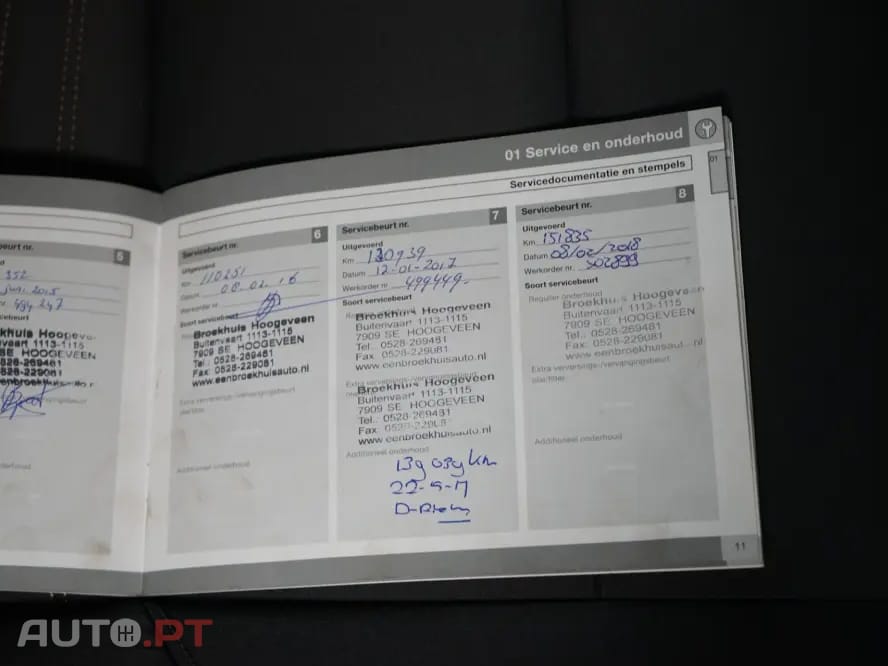 01 Service en onderhoud
01
Servicedocumentatie en stempels
beurt nr. 5
352
juni 2015
nr 494247
Broekhuis Hoogeve
Buitenvaart 1113-1115
SE HOOGEVEEN
0528-269481
0528-229081
eenbroekhuisauto.n
vervangingsbeurt
onderhoud
Servicebeurt nr. 6
Uitgevoerd
Km 110251
Datum 08.02.16
Werkorder nr
Soort servicebeurt
Broekhuis Hoogeveen
Buitenvaart 1113-1115
7909 SE HOOGEVEEN
Tel.: 0528-269481
Fax: 0528-229081
www.eenbroekhuisauto.nl
Extra verversings-/vervangingsbeurt
olie/filter
Additioneel onderhoud
Servicebeurt nr. 7
Uitgevoerd
Km 130939
Datum 12-01-2017
Werkorder nr 499449
Soort servicebeurt
Broekhuis Hoogeveen
Buitenvaart 1113-1115
7909 SE HOOGEVEEN
Tel.: 0528-269481
Fax: 0528-229081
www.eenbroekhuisauto.nl
Extra verversings-/vervangingsbeurt
Broekhuis Hoogeveen
Buitenvaart 1113-1115
7909 SE HOOGEVEEN
Tel.: 0528-269481
Fax: 0528-229081
www.eenbroekhuisauto.nl
Additioneel onderhoud
139039 km
22-9-17
Servicebeurt nr. 8
Uitgevoerd
Km 151835
Datum 08/02/2018
Werkorder nr 502899
Soort servicebeurt
Regulier onderhoud
Broekhuis Hoogeveen
Buitenvaart 1113-1115
7909 SE HOOGEVEEN
Tel.: 0528-269481
Fax: 0528-229081
www.eenbroekhuisauto.nl
Extra verversings-/vervangingsbeurt
olie/filter
Additioneel onderhoud
11
AUTO.PT